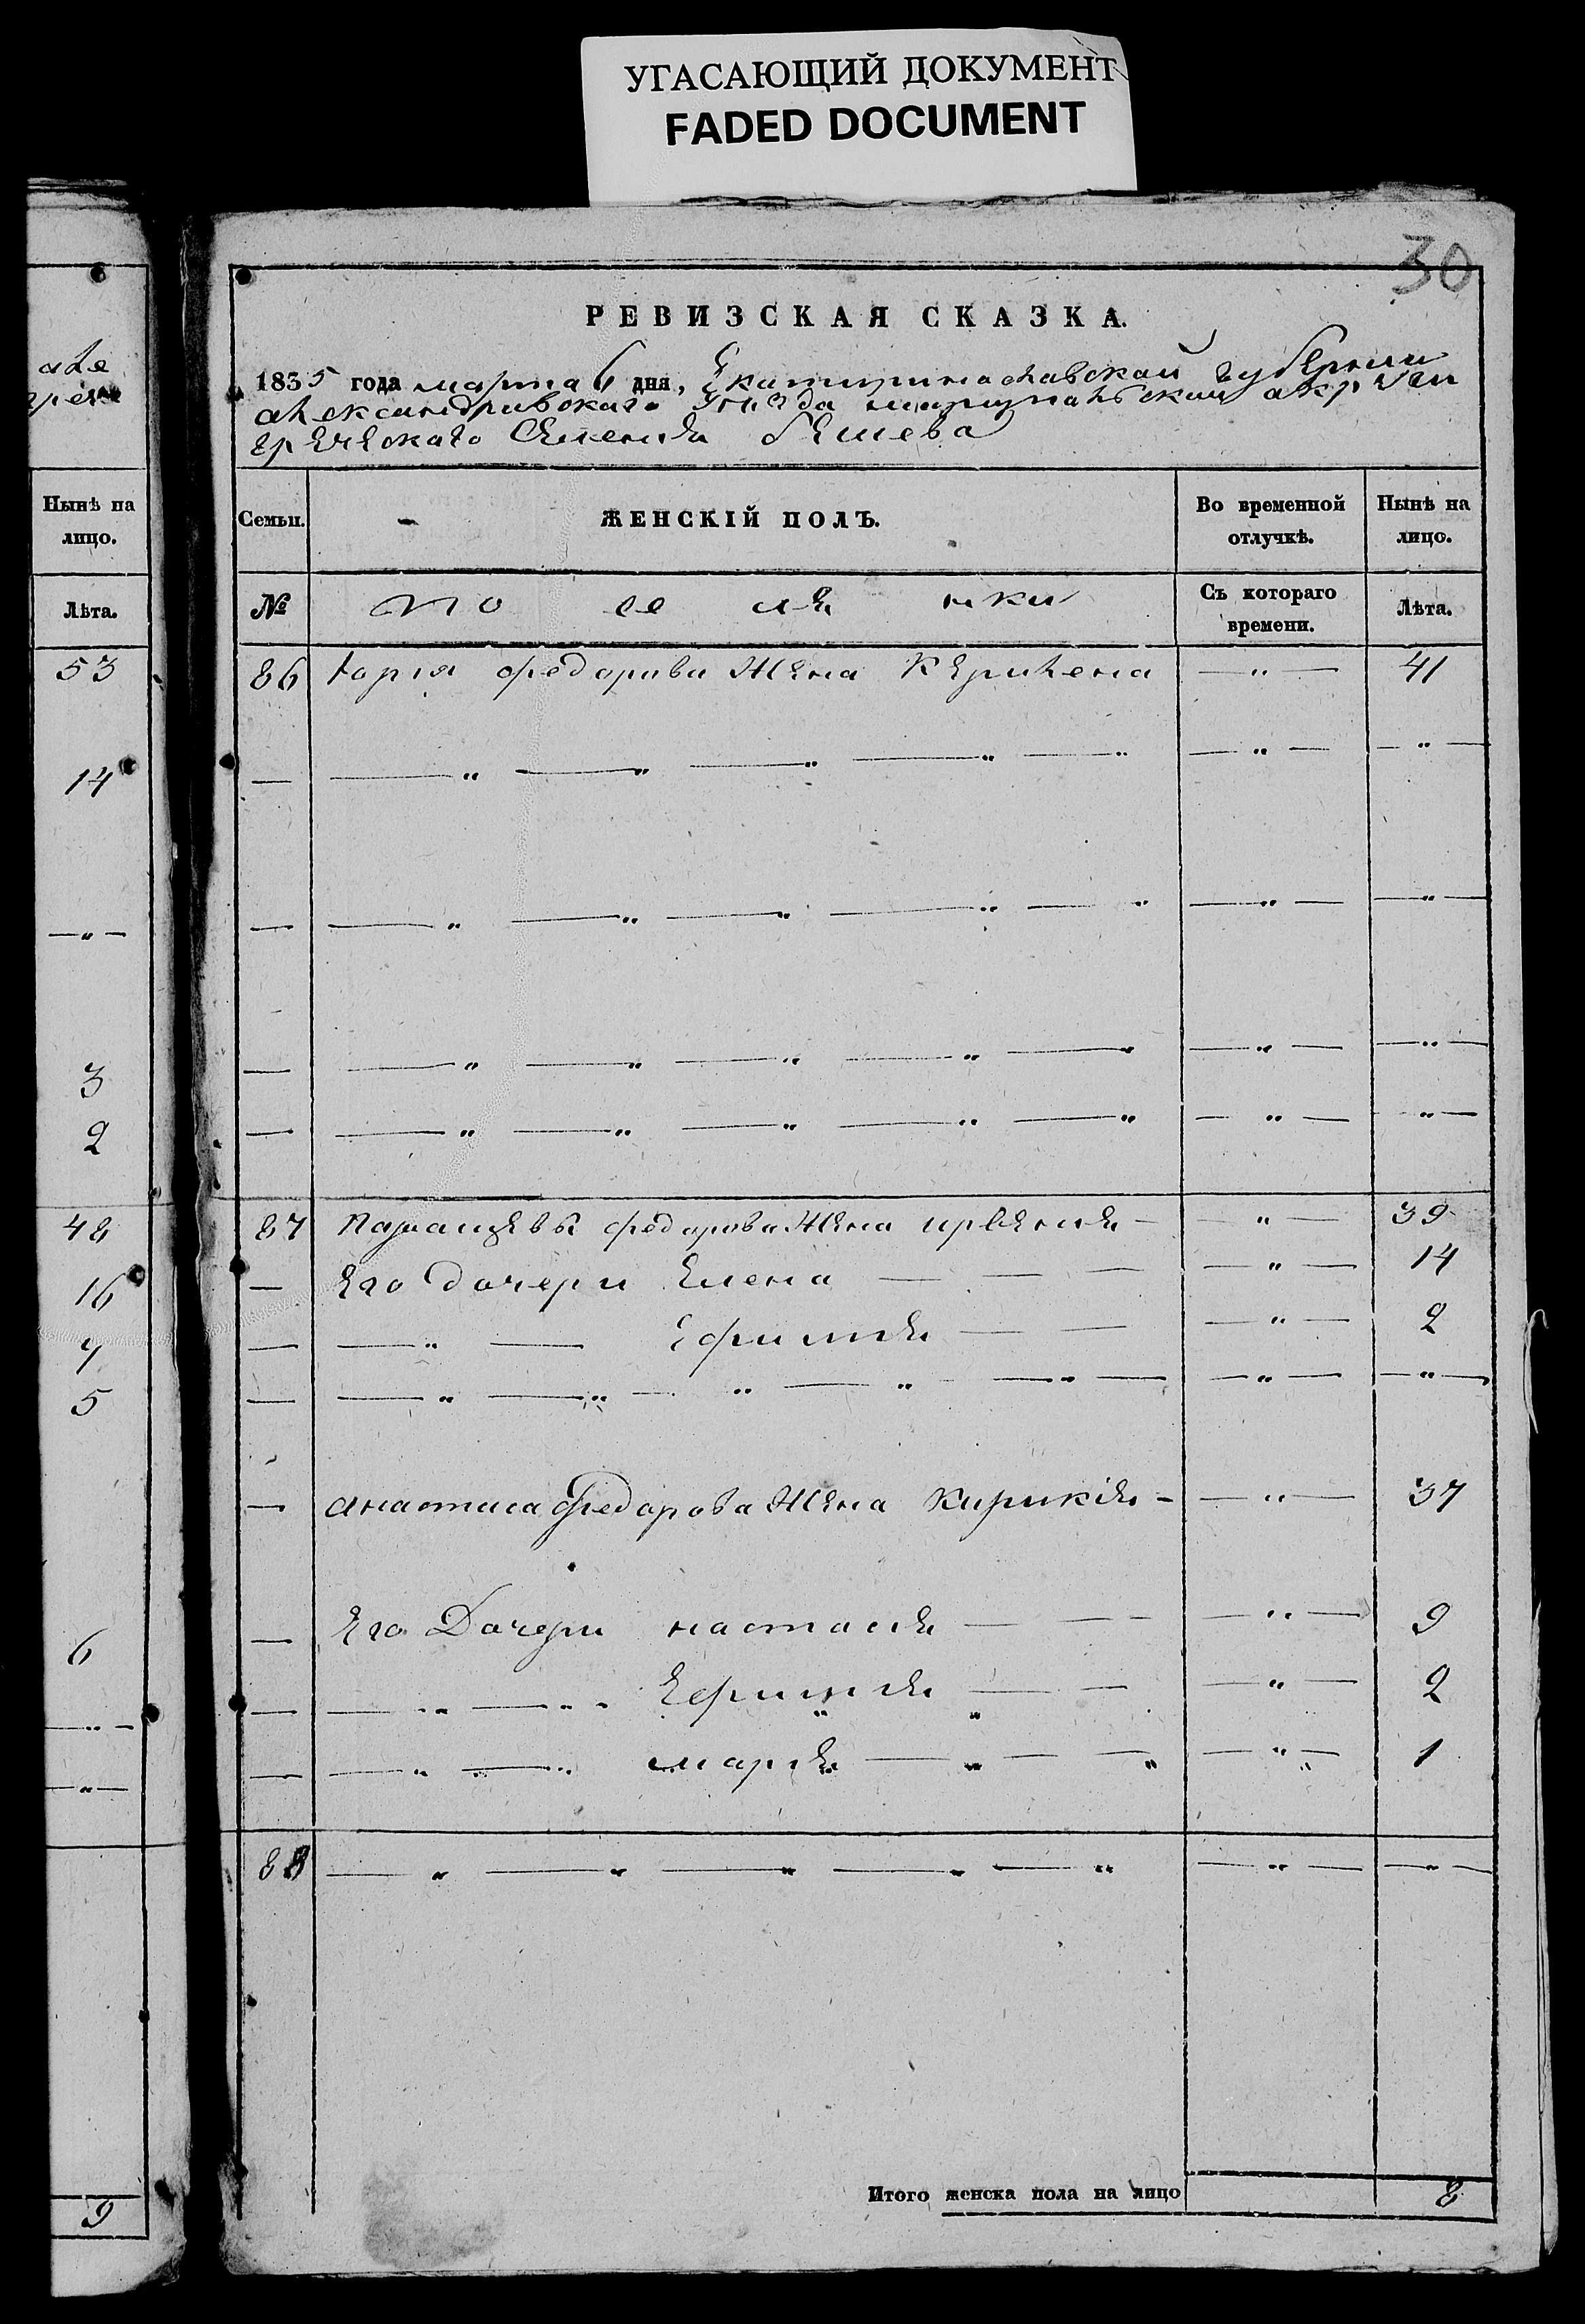 УГАСАЮЩИЙ ДОКУМЕНТ
FADED DOCUMENT
30
РЕВИЗСКАЯ СКАЗКА.
1835 года марта 6 дня, Екатиринославской губерни
александравскаго Уѣзда мариупальской акруги
греческаго Селения бешева
Семьи.
ЖЕНСКІЙ ПОЛЪ.
Во временной отлучкѣ.
Нынѣ на лицо.
№
по се ля нки
Съ котораго времени.
Лѣта.
86 Юрия федорава жена — " — 41
— — " — " — " — " — " — " — — " —
— — " — " — " — " — " — " — — " —
— — " — " — " — " — " — " — — " —
— — " — " — " — " — " — " — — " —
87 федорова жена — — " — 39
— Его дочери Елена — — — — " — 14
— — " — Ефимия — — — " — 2
— — " — " — " — " — " — — " — — " —
— анастаса Федорова жена Кирикия — — " — 37
— Его Дочери настасия — — — — " — 9
— — " — " Ефимия — — — " — 2
— — " — " мария — " — " — " — 1
88 — " — " — " — " — " — " — — " —
Итого женска пола на лицо 8
Нынѣ на лицо.
Лѣта.
53
14
— " —
3
2
48
16
7
5
6
— " —
— " —
9